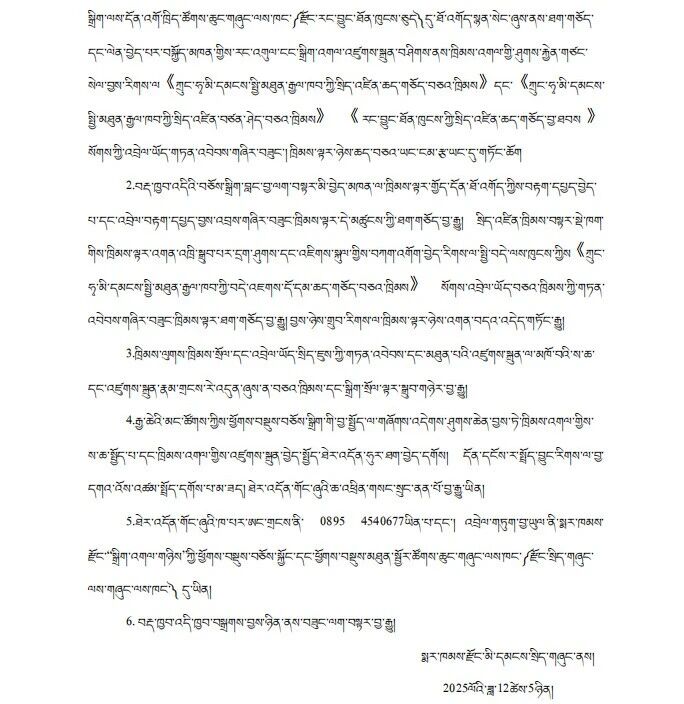 སྒྲིག་ལས་དོན་འགོ་ཁྲིད་ཚོགས་ཆུང་གཞུང་ལས་ཁང་༼རྫོང་རང་བྱུང་ཐོན་ཁུངས་ཅུད༽དུ་ཐོ་འགོད་སྙན་སེང་ཞུས་ནས་ཐག་གཅོད་
དང་ལེན་བྱེད་པར་བསྐྱོད་མཁན་གྱིས་རང་འགུལ་ངང་སྒྲིག་འགལ་འཛུགས་སྐྲུན་བཤིགས་ནས་ཁྲིམས་འགལ་གྱི་ཤུགས་རྐྱེན་གཙང་
སེལ་བྱས་རིགས་ལ《ཀྲུང་ཧྭ་མི་དམངས་སྤྱི་མཐུན་རྒྱལ་ཁབ་ཀྱི་སྲིད་འཛིན་ཆད་གཅོད་བཅའ་ཁྲིམས》དང་《ཀྲུང་ཧྭ་མི་དམངས་
སྤྱི་མཐུན་རྒྱལ་ཁབ་ཀྱི་སྲིད་འཛིན་བཙན་ཤེད་བཅའ་ཁྲིམས》《རང་བྱུང་ཐོན་ཁུངས་ཀྱི་སྲིད་འཛིན་ཆད་གཅོད་བྱ་ཐབས》
སོགས་ཀྱི་འབྲེལ་ཡོད་གཏན་འབེབས་གཞིར་བཟུང་། ཁྲིམས་ལྟར་ཉེས་ཆད་བཅའ་ཡང་ངམ་རྩ་ཡང་དུ་གཏོང་ཆོག
2.བརྡ་ཁྱབ་འདིའི་བཅོས་སྒྲིག་བླང་བྱ་ལག་བསྟར་མི་བྱེད་མཁན་ལ་ཁྲིམས་ལྟར་གྱོད་དོན་ཐོ་འགོད་ཀྱིས་བརྟག་དཔྱད་བྱེད་
པ་དང་འབྲེལ་བརྟག་དཔྱད་བྱས་འབྲས་གཞིར་བཟུང་ཁྲིམས་ལྟར་དེ་མཚུངས་ཀྱི་ཐག་གཅོད་བྱ་རྒྱུ། སྲིད་འཛིན་ཁྲིམས་བསྟར་སྡེ་ཁག་
གིས་ཁྲིམས་ལྟར་འགན་འཁྲི་སྒྲུབ་པར་དྲག་ཤུགས་དང་འཇིགས་སྐུལ་གྱིས་བཀག་འགོག་བྱེད་རིགས་ལ་སྤྱི་བདེ་ལས་ཁུངས་ཀྱིས《ཀྲུང་
ཧྭ་མི་དམངས་སྤྱི་མཐུན་རྒྱལ་ཁབ་ཀྱི་བདེ་འཇགས་དོ་དམ་ཆད་གཅོད་བཅའ་ཁྲིམས》 སོགས་འབྲེལ་ཡོད་བཅའ་ཁྲིམས་ཀྱི་གཏན་
འབེབས་གཞིར་བཟུང་ཁྲིམས་ལྟར་ཐག་གཅོད་བྱ་རྒྱུ། བྱས་ཉེས་གྲུབ་རིགས་ལ་ཁྲིམས་ལྟར་ཉེས་འགན་བདའ་འདེད་གཏོང་རྒྱུ།
3.ཁྲིམས་ལུགས་ཁྲིམས་སྲོལ་དང་འབྲེལ་ཡོད་སྲིད་ཇུས་ཀྱི་གཏན་འབེབས་དང་མཐུན་པའི་འཛུགས་སྐྲུན་ལ་མཁོ་བའི་ས་ཆ་
དང་འཛུགས་སྐྲུན་རྣམ་གྲངས་རེ་འདུན་ཞུས་ན་བཅའ་ཁྲིམས་དང་སྒྲིག་སྲོལ་ལྟར་སྒྲུབ་གཉེར་བྱ་རྒྱུ།
4.རྒྱ་ཆེའི་མང་ཚོགས་ཀྱིས་ཕྱོགས་བསྡུས་བཅོས་སྒྲིག་གི་བྱ་སྤྱོད་ལ་གཞོགས་འདེགས་ཤུགས་ཆེན་བྱས་ཏེ་ཁྲིམས་འགལ་གྱིས་
ས་ཆ་སྤྱོད་པ་དང་ཁྲིམས་འགལ་གྱིས་འཛུགས་སྐྲུན་བྱེད་སྤྱོད་ཐེར་འདོན་ཧུར་ཐག་བྱེད་དགོས། དོན་དངོས་ར་སྤྲོད་བྱུང་རིགས་ལ་བྱ་
དགའ་འོས་འཚམ་སྤྲོད་དགོས་པ་མ་ཟད། ཐེར་འདོན་གོང་ཞུའི་ཆ་འཕྲིན་གསང་སྲུང་ནན་པོ་བྱ་རྒྱུ་ཡིན།
5.ཐེར་འདོན་གོང་ཞུའི་ཁ་པར་ཨང་གྲངས་ནི་ 0895 4540677ཡིན་པ་དང་། འབྲེལ་གཏུག་བྱ་ཡུལ་ནི་སྨར་ཁམས་
རྫོང་“སྒྲིག་འགལ་གཉིས”ཀྱི་ཕྱོགས་བསྡུས་བཅོས་སྐྱོང་དང་ཕྱོགས་བསྡུས་མཐུན་སྦྱོར་ཚོགས་ཆུང་གཞུང་ལས་ཁང་༼རྫོང་སྲིད་གཞུང་
ལས་གཞུང་ལས་ཁང་༽དུ་ཡིན།
6. བརྡ་ཁྱབ་འདི་ཁྱབ་བསྒྲགས་བྱས་ཉིན་ནས་བཟུང་ལག་བསྟར་བྱ་རྒྱུ།
སྨར་ཁམས་རྫོང་མི་དམངས་སྲིད་གཞུང་ནས།
2025ལོའི་ཟླ་12ཚེས་5ཉིན།